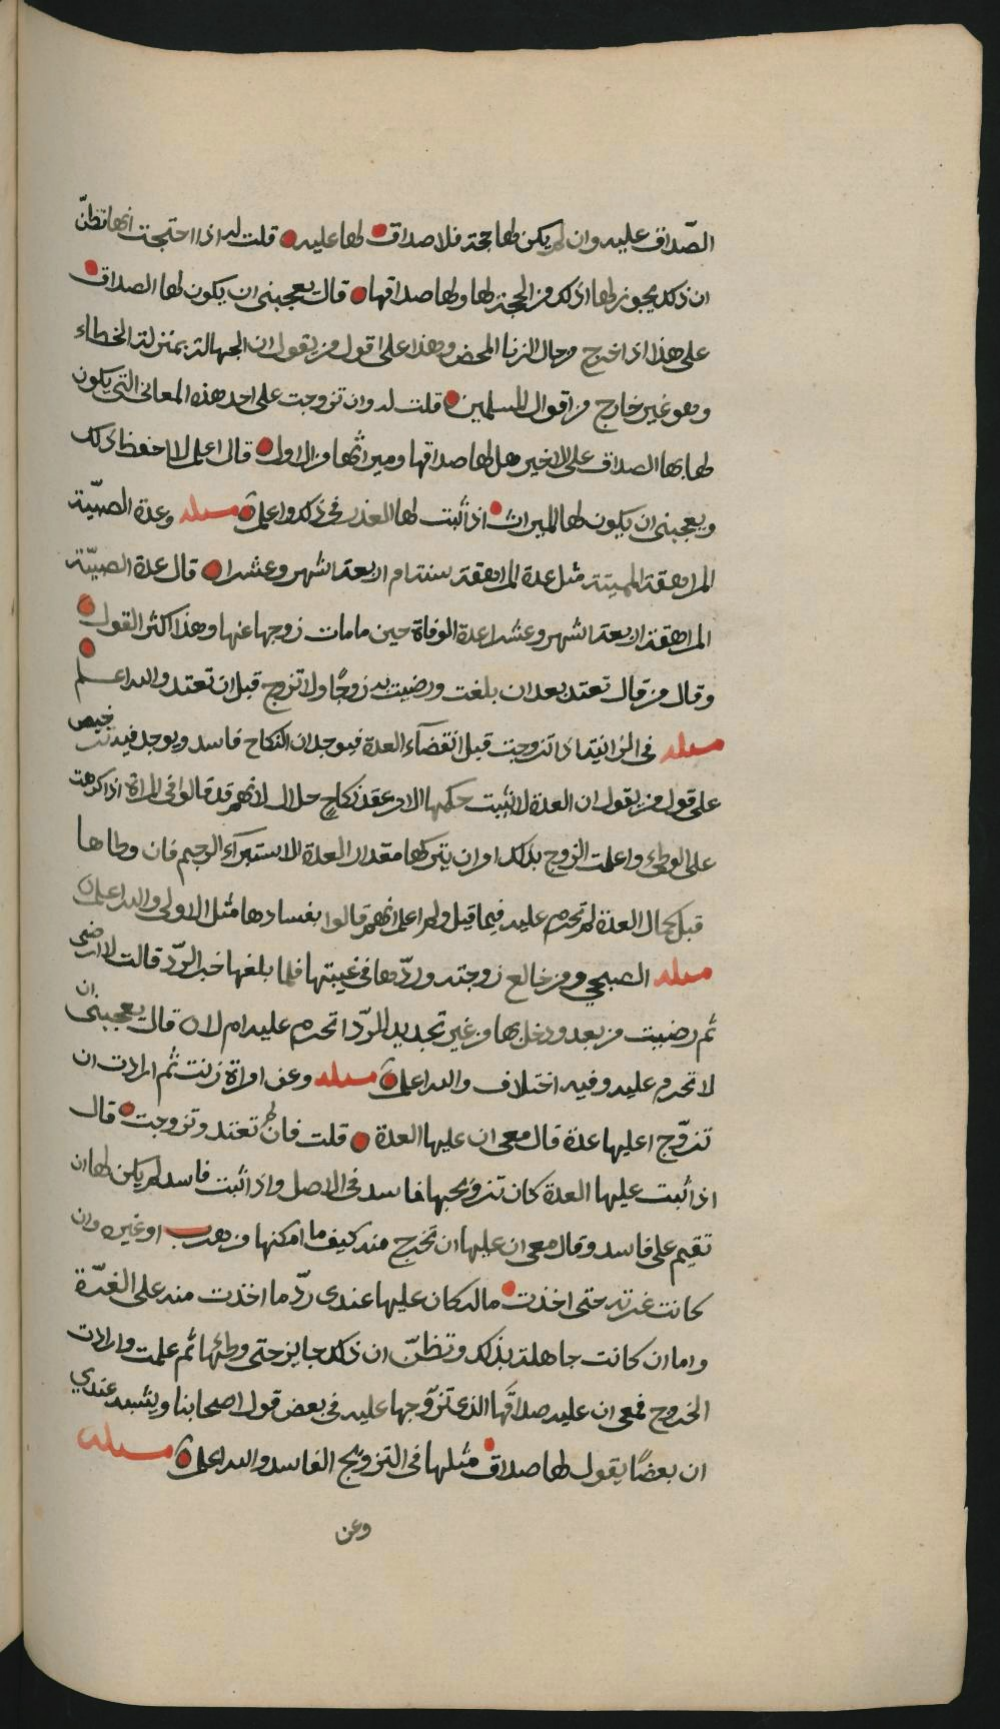 الصّداق عليه وان لم يكن لها حجة فلا صداق لها عليه قلت له اذا احتجت انها تظنّ
ان ذلك يجوز لها اذلك من الحجة لها ولها صداقها قال يعجبني ان يكون لها الصداق
على هذا اذا خرج من حال الزنا المحض وهذا على قول من يقول ان الجهالة بمنزلة الخطاء
وهو غير خارج من اقوال المسلمين قلت له وان تزوجت على احد هذه المعاني التي يكون
لها بها الصداق على الاخير هل لها صداقها وميراثها من الاول قال اعلم لا احفظ ذلك
ويعجبني ان يكون لها الميراث اذا ثبت لها العذر في ذلك واعلم مسله وعدة الصبيّة
المراهقة المميتة مثل عدة المراهقة سنة ام اربعة اشهر وعشرا قال عدة الصبيّة
المراهقة اربعة اشهر وعشرا عدة الوفاة حين ما مات زوجها عنها وهذا اكثر القول
وقال من قال تعتد بعد ان بلغت ورضيت به زوجًا ولا تزوج قبل ان تعتد والله اعلم
مسله في الزانية اذا تزوجت قبل انقضآء العدة فيوجد ان النكاح فاسد ويوجد فيه ترخيص
على قول من يقول ان العدة لا يثبت حكمها الا من عقد نكاح حلال لانهم قد قالوا في المراة اذا كرهت
على الوطئ واعلمت الزوج بذلك امر ان يتركها مقدار العدة لاستبرآء الرحم فان وطاها
قبل كمال العدة لم تحرم عليه فيما قيل ولم اعلم انهم قالوا بفسادها مثل الاولى والله اعلم
مسله الصبحي ومن خالع زوجته وردّها في غيبتها فلما بلغها خبر الردّ قالت لا ارضى
ثم رضيت من بعد ودخل بها من غير تجديد للردّ اتحرم عليه ام لا قال يعجبني ان
لا تحرم عليه وفيه اختلاف والله اعلم مسله وعن امراة زنت ثم ارادت ان
تزوّج اعليها عدة قال معي ان عليها العدة قلت فان لم تعتد وتزوجت قال
اذا ثبت عليها العدة كان تزويجها فاسد في الاصل واذا ثبت فاسد لم يكن لها ان
تقيم على فاسد وقال معي ان عليها ان تخرج منه كيف ما امكنها من هرب او غيره وان
كانت غرته حتى اخذت ماله كان عليها عندي ردّ ما اخذت منه على الغرّة
واما ان كانت جاهلة بذلك وتظنّ ان ذلك جايز حتى وطئها ثم علمت وارادت
الخروج فمعي ان عليه صداقها الذي تزوّجها عليه في بعض قول اصحابنا ويشبه عندي
ان بعضًا يقول لها صداق مثلها في التزويج الفاسد والله اعلم مسله
وعن